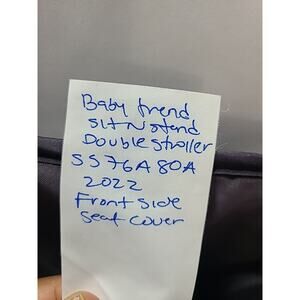 Baby trend
sit N stand
Double stroller
SS76A80A
2022
Front side
seat cover